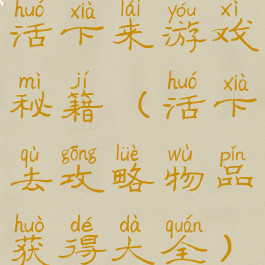 huó xià lái yóu xì
活下来游戏
mì jí huó xià
秘籍（活下
qù gōng lüè wù pǐn
去攻略物品
huò dé dà quán
获得大全）